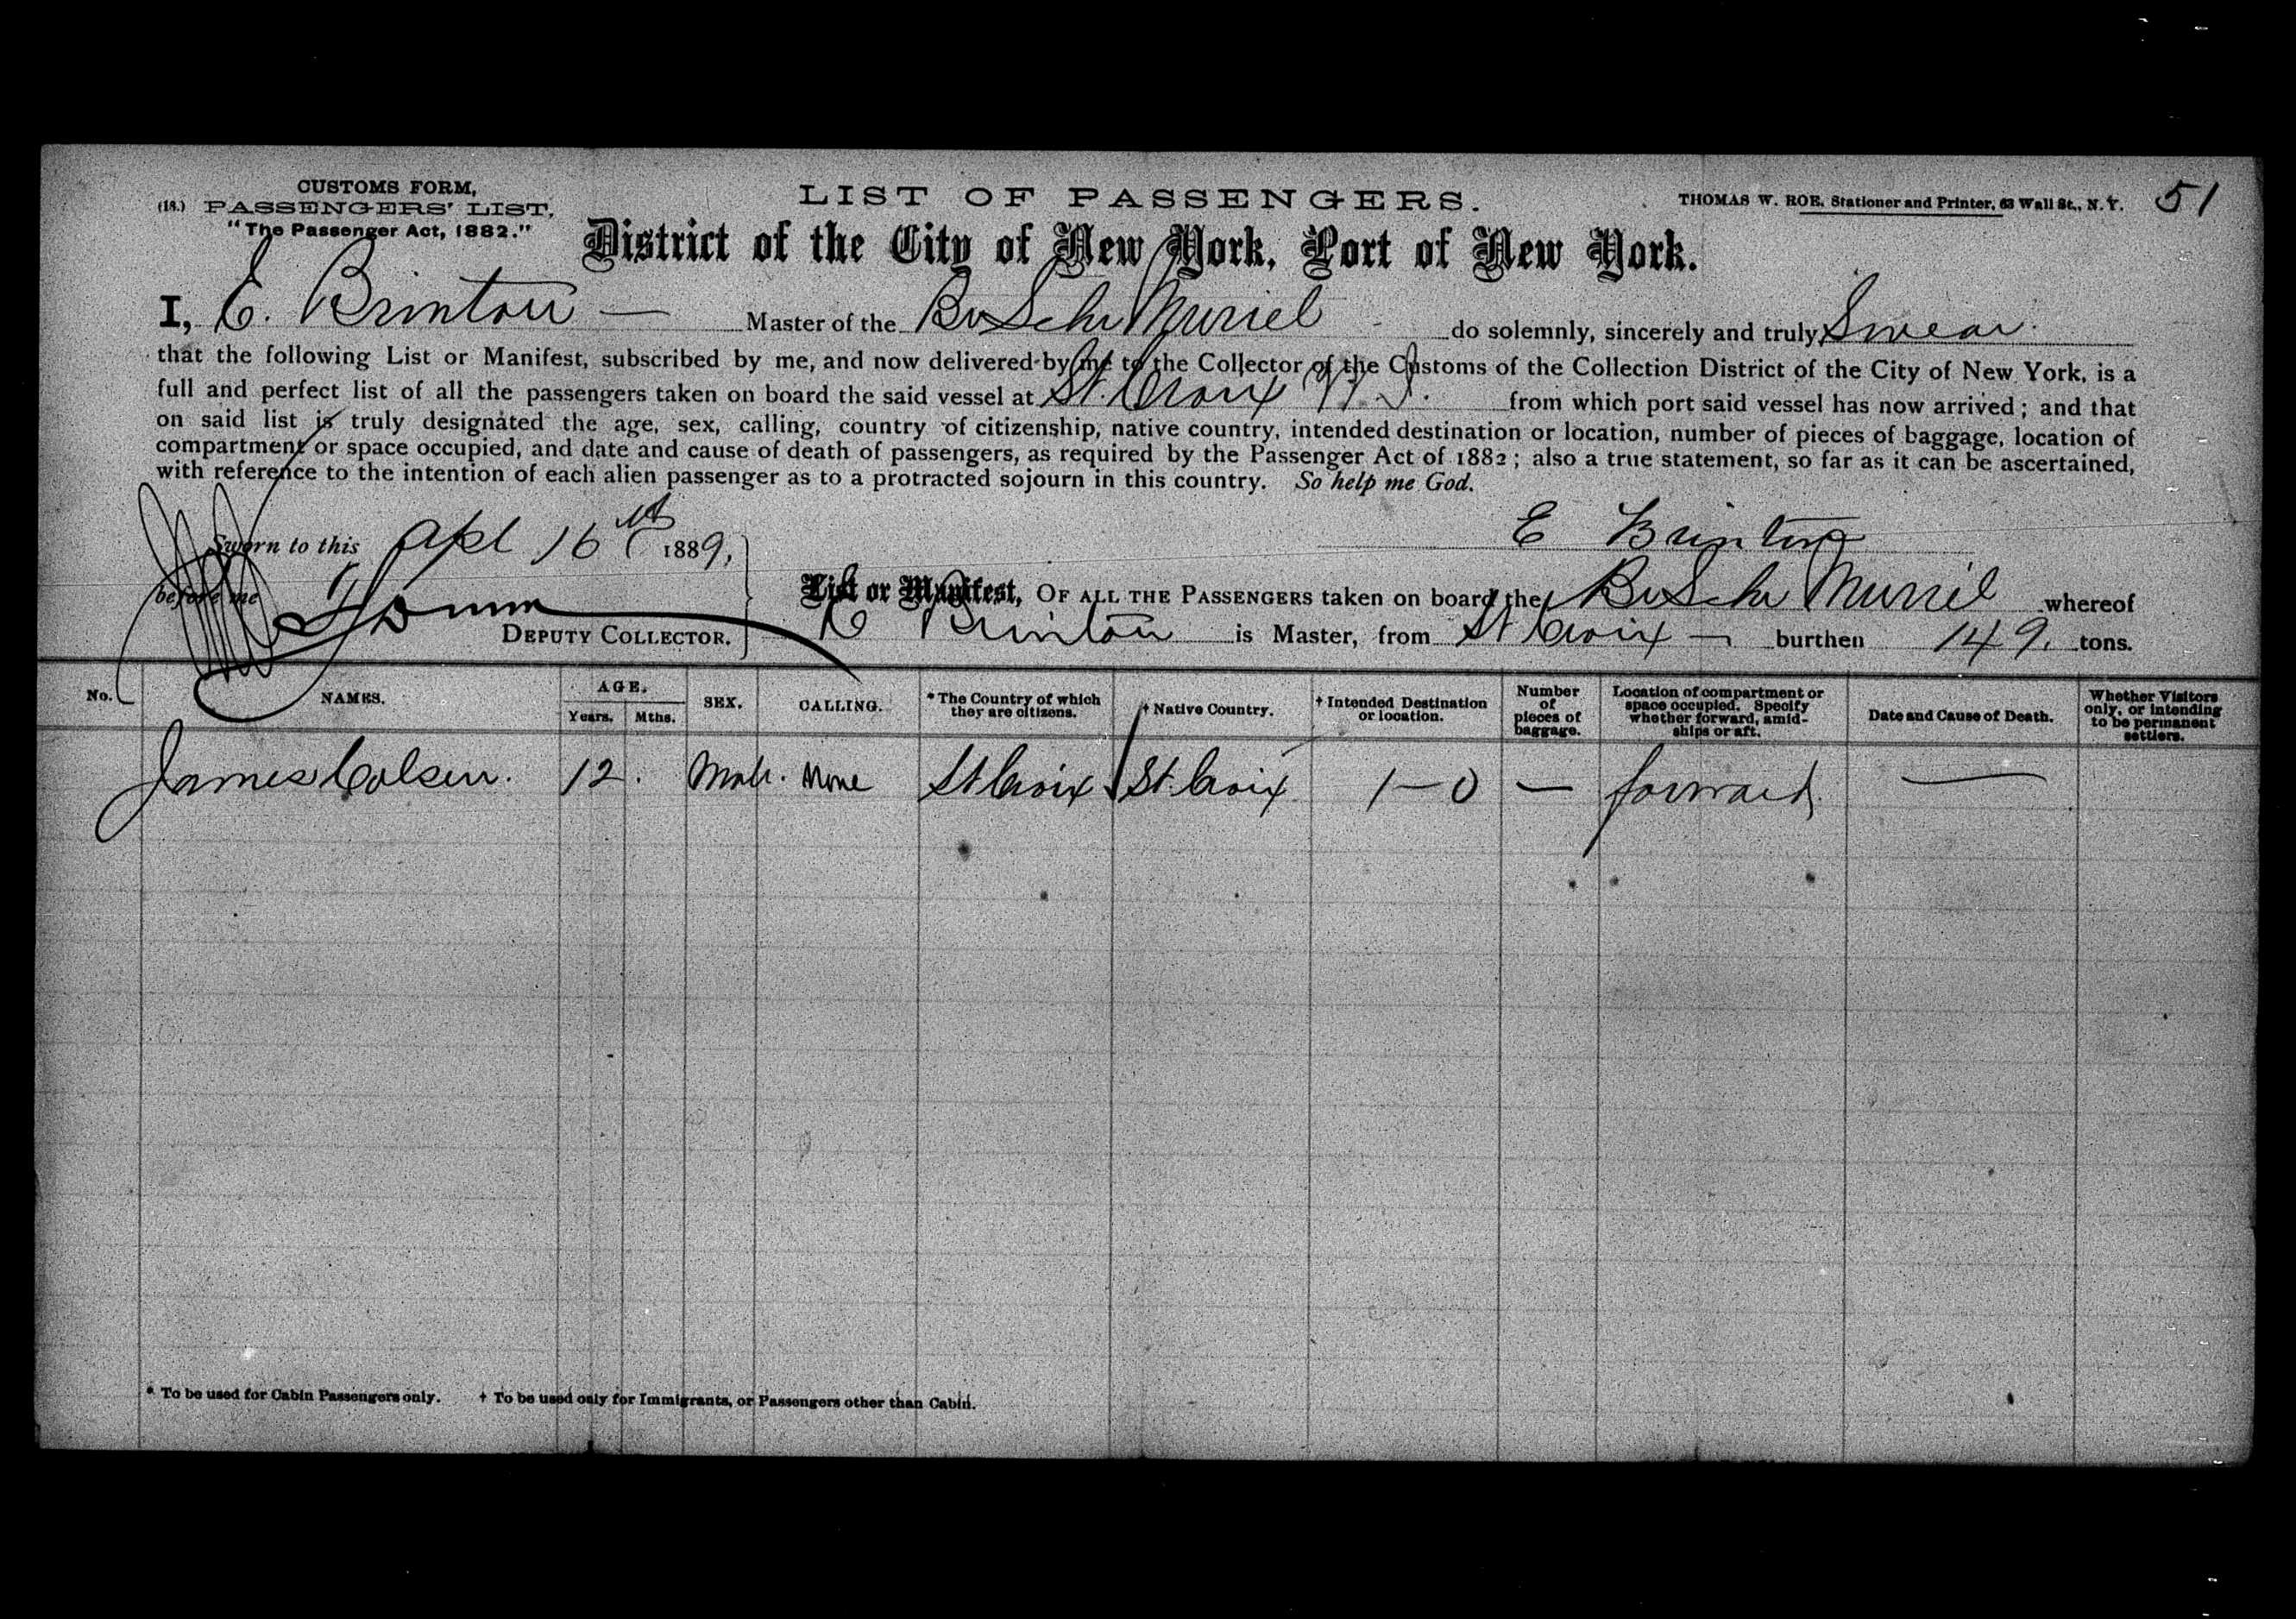 CUSTOMS FORM,
(18.) PASSENGERS' LIST,
"The Passenger Act, 1882."
LIST OF PASSENGERS.
THOMAS W. ROE, Stationer and Printer, 63 Wall St., N. Y.
51
District of the City of New York, Port of New York.
I, E. Brinton — Master of the Br Schr Muriel do solemnly, sincerely and truly Swear
that the following List or Manifest, subscribed by me, and now delivered by me to the Collector of the Customs of the Collection District of the City of New York, is a
full and perfect list of all the passengers taken on board the said vessel at St. Croix W.I. from which port said vessel has now arrived; and that
on said list is truly designated the age, sex, calling, country of citizenship, native country, intended destination or location, number of pieces of baggage, location of
compartment or space occupied, and date and cause of death of passengers, as required by the Passenger Act of 1882; also a true statement, so far as it can be ascertained,
with reference to the intention of each alien passenger as to a protracted sojourn in this country. So help me God.
Sworn to this Apl 16th 1889,
E Brinton
before me
DEPUTY COLLECTOR.
List or Manifest, OF ALL THE PASSENGERS taken on board the Br Schr Muriel whereof
E Brinton is Master, from St Croix — burthen 149. tons.
No. NAMES. AGE. Years. Mths. SEX. CALLING. * The Country of which they are citizens. † Native Country. † Intended Destination or location. Number of pieces of baggage. Location of compartment or space occupied. Specify whether forward, amidships or aft. Date and Cause of Death. Whether Visitors only, or intending to be permanent settlers.
James Colsen. 12. Male. None St Croix St Croix 1—0 — forward —
* To be used for Cabin Passengers only. † To be used only for Immigrants, or Passengers other than Cabin.